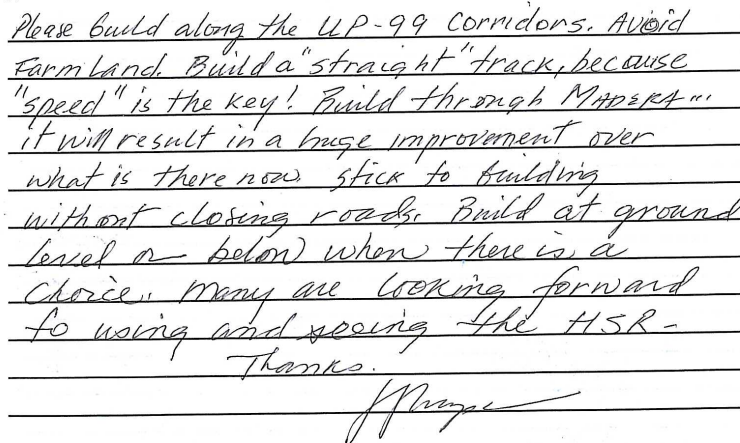 Please build along the UP-99 Corridors. Avoid
Farmland. Build a "straight" track, because
"speed" is the key! Build through MADERA...
it will result in a huge improvement over
what is there now. Stick to building
without closing roads. Build at ground
level or below when there is a
choice. Many are looking forward
to using and seeing the HSR-
Thanks.